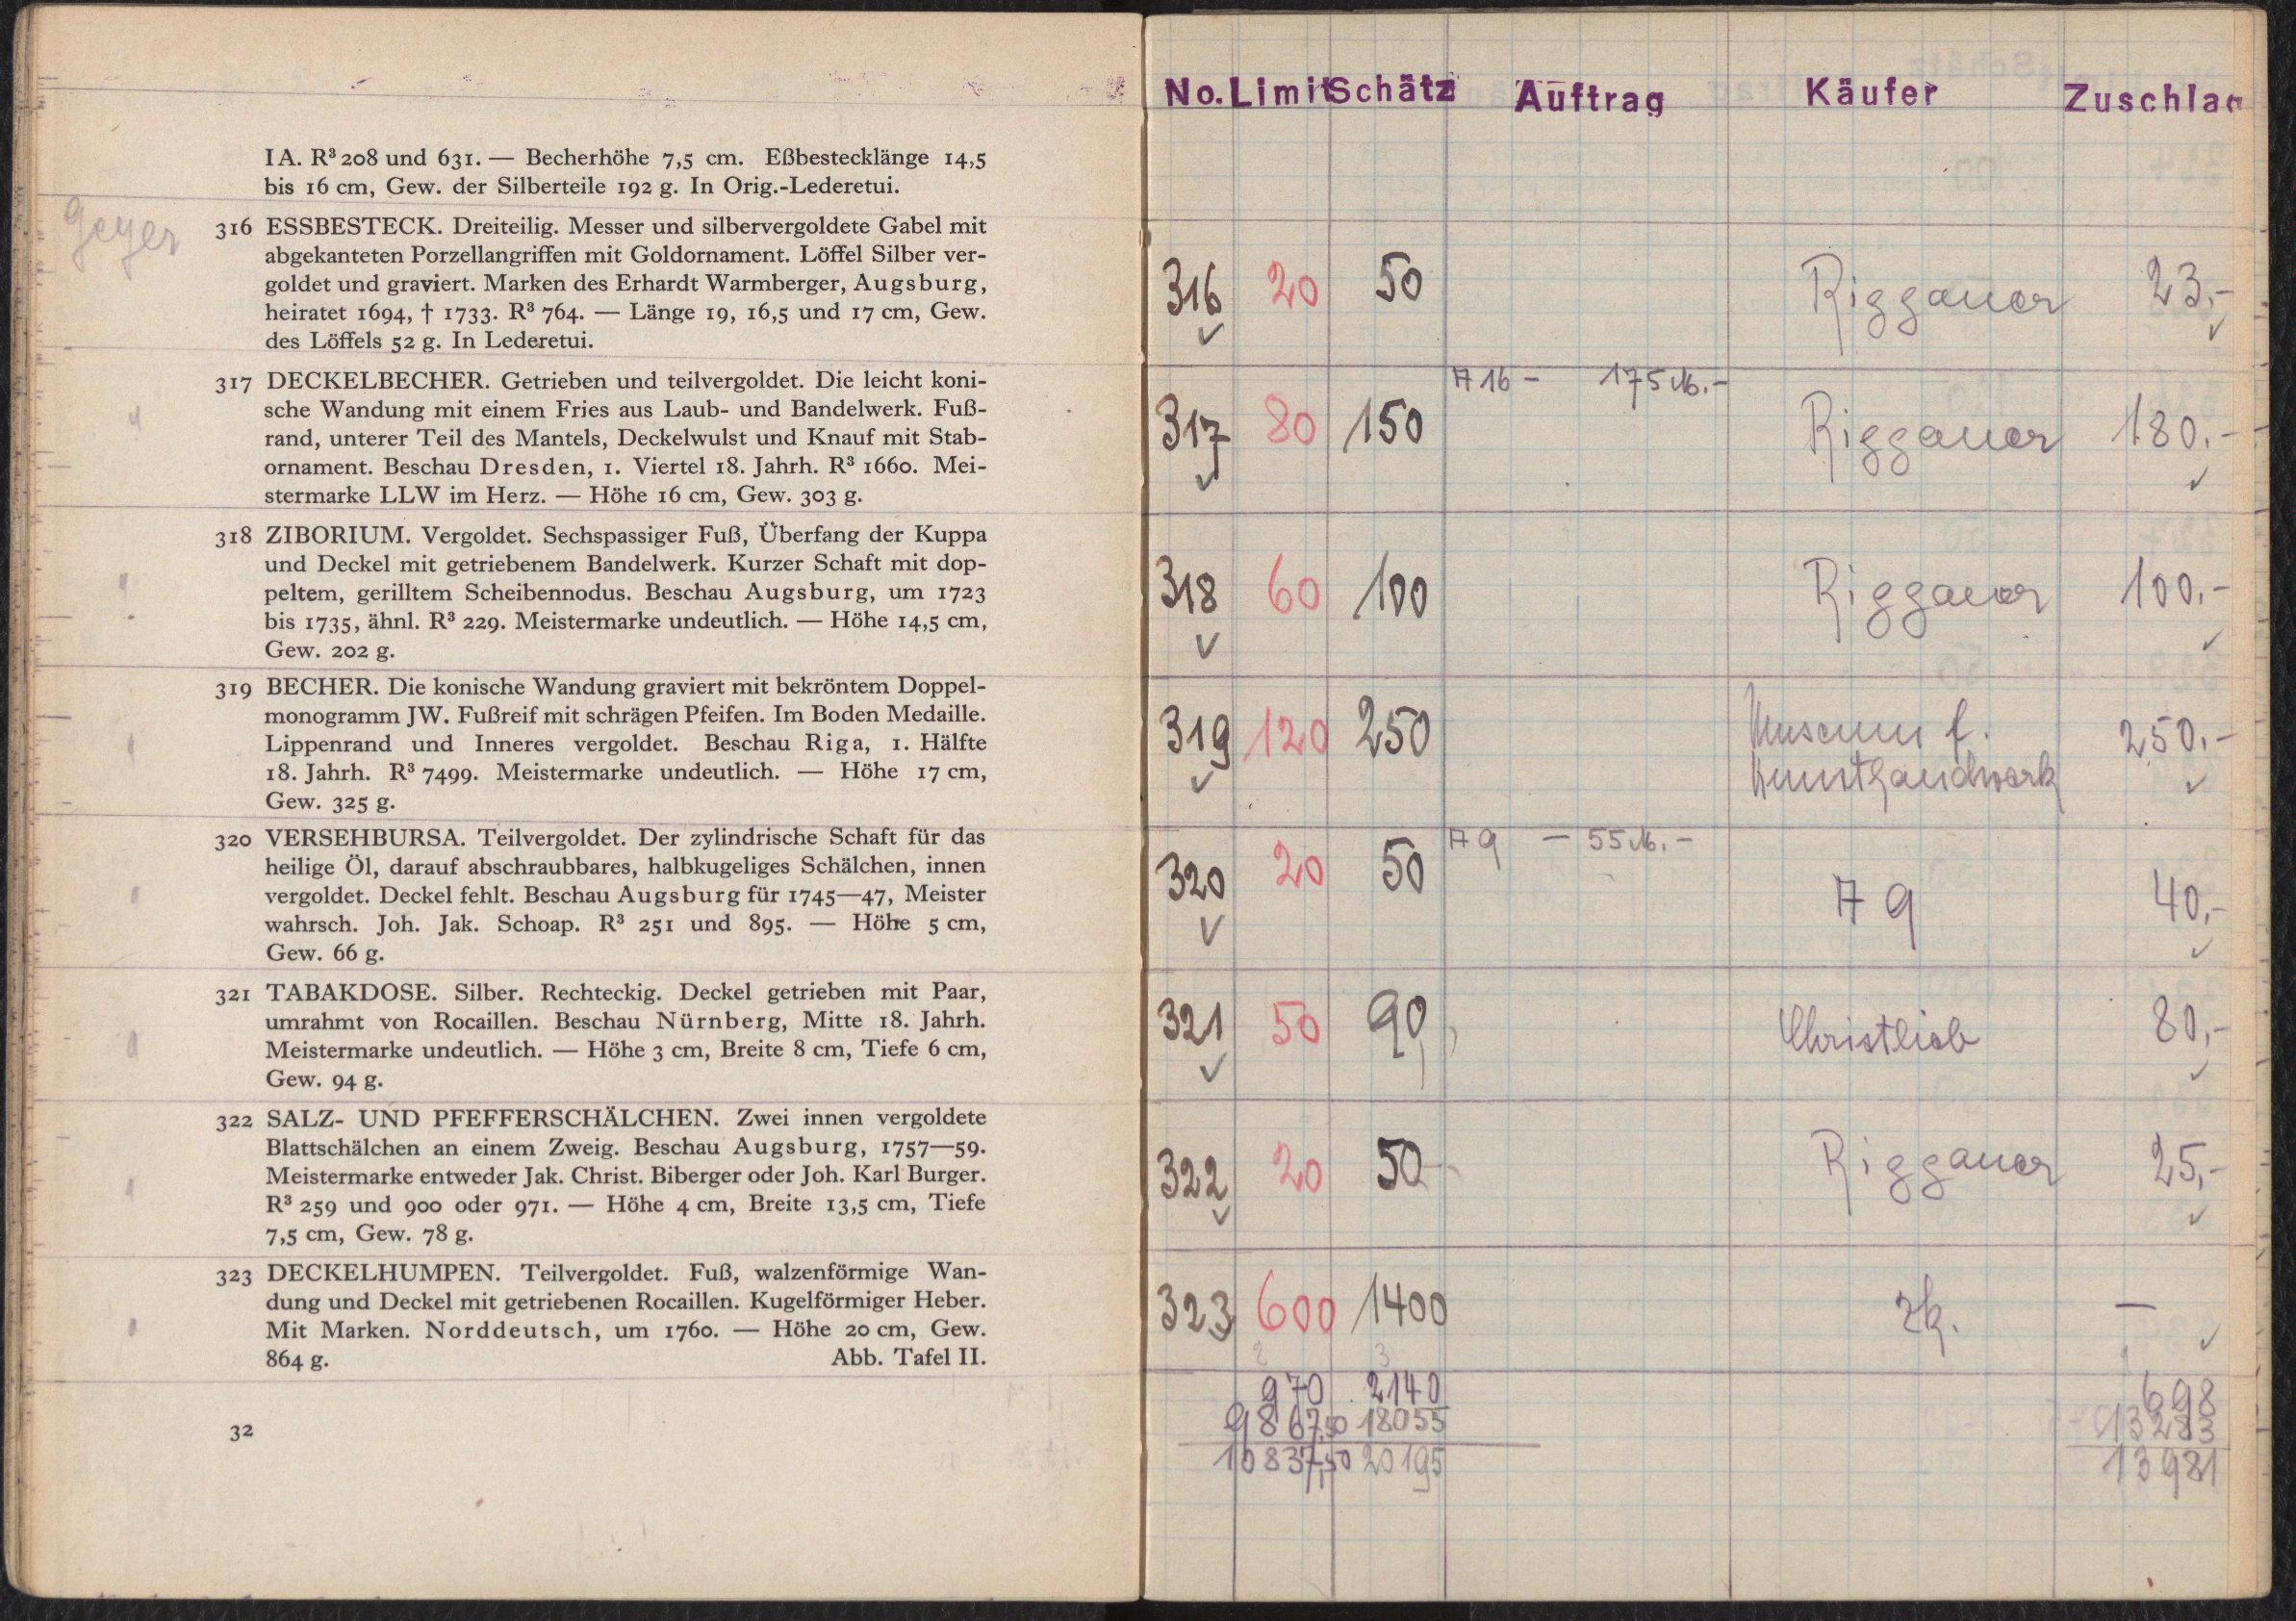 IA. R³ 208 und 631. — Becherhöhe 7,5 cm. Eßbestecklänge 14,5
bis 16 cm, Gew. der Silberteile 192 g. In Orig.-Lederetui.
Geyer
316 ESSBESTECK. Dreiteilig. Messer und silbervergoldete Gabel mit
abgekanteten Porzellangriffen mit Goldornament. Löffel Silber ver-
goldet und graviert. Marken des Erhardt Warmberger, Augsburg,
heiratet 1694, † 1733. R³ 764. — Länge 19, 16,5 und 17 cm, Gew.
des Löffels 52 g. In Lederetui.
317 DECKELBECHER. Getrieben und teilvergoldet. Die leicht koni-
sche Wandung mit einem Fries aus Laub- und Bandelwerk. Fuß-
rand, unterer Teil des Mantels, Deckelwulst und Knauf mit Stab-
ornament. Beschau Dresden, 1. Viertel 18. Jahrh. R³ 1660. Mei-
stermarke LLW im Herz. — Höhe 16 cm, Gew. 303 g.
318 ZIBORIUM. Vergoldet. Sechspassiger Fuß, Überfang der Kuppa
und Deckel mit getriebenem Bandelwerk. Kurzer Schaft mit dop-
peltem, gerilltem Scheibennodus. Beschau Augsburg, um 1723
bis 1735, ähnl. R³ 229. Meistermarke undeutlich. — Höhe 14,5 cm,
Gew. 202 g.
319 BECHER. Die konische Wandung graviert mit bekröntem Doppel-
monogramm JW. Fußreif mit schrägen Pfeifen. Im Boden Medaille.
Lippenrand und Inneres vergoldet. Beschau Riga, 1. Hälfte
18. Jahrh. R³ 7499. Meistermarke undeutlich. — Höhe 17 cm,
Gew. 325 g.
320 VERSEHBURSA. Teilvergoldet. Der zylindrische Schaft für das
heilige Öl, darauf abschraubbares, halbkugeliges Schälchen, innen
vergoldet. Deckel fehlt. Beschau Augsburg für 1745—47, Meister
wahrsch. Joh. Jak. Schoap. R³ 251 und 895. — Höhe 5 cm,
Gew. 66 g.
321 TABAKDOSE. Silber. Rechteckig. Deckel getrieben mit Paar,
umrahmt von Rocaillen. Beschau Nürnberg, Mitte 18. Jahrh.
Meistermarke undeutlich. — Höhe 3 cm, Breite 8 cm, Tiefe 6 cm,
Gew. 94 g.
322 SALZ- UND PFEFFERSCHÄLCHEN. Zwei innen vergoldete
Blattschälchen an einem Zweig. Beschau Augsburg, 1757—59.
Meistermarke entweder Jak. Christ. Biberger oder Joh. Karl Burger.
R³ 259 und 900 oder 971. — Höhe 4 cm, Breite 13,5 cm, Tiefe
7,5 cm, Gew. 78 g.
323 DECKELHUMPEN. Teilvergoldet. Fuß, walzenförmige Wan-
dung und Deckel mit getriebenen Rocaillen. Kugelförmiger Heber.
Mit Marken. Norddeutsch, um 1760. — Höhe 20 cm, Gew.
864 g. Abb. Tafel II.
32
No. Limit Schätz Auftrag Käufer Zuschlag
316 20 50 Riggauer 23,-
A 16 - 175 M.-
317 80 150 Riggauer 180.-
318 60 100 Riggauer 100,-
319 120 250 Museum f. 250.-
Kunsthandwerk
A 9 — 55 M.-
320 20 50 A 9 40,-
321 50 90 Christlieb 80,-
322 20 50 Riggauer 25,-
323 600 1400 zk. —
2 3
970 2140 698
9867,50 18055 13283
10837,50 20195 13981